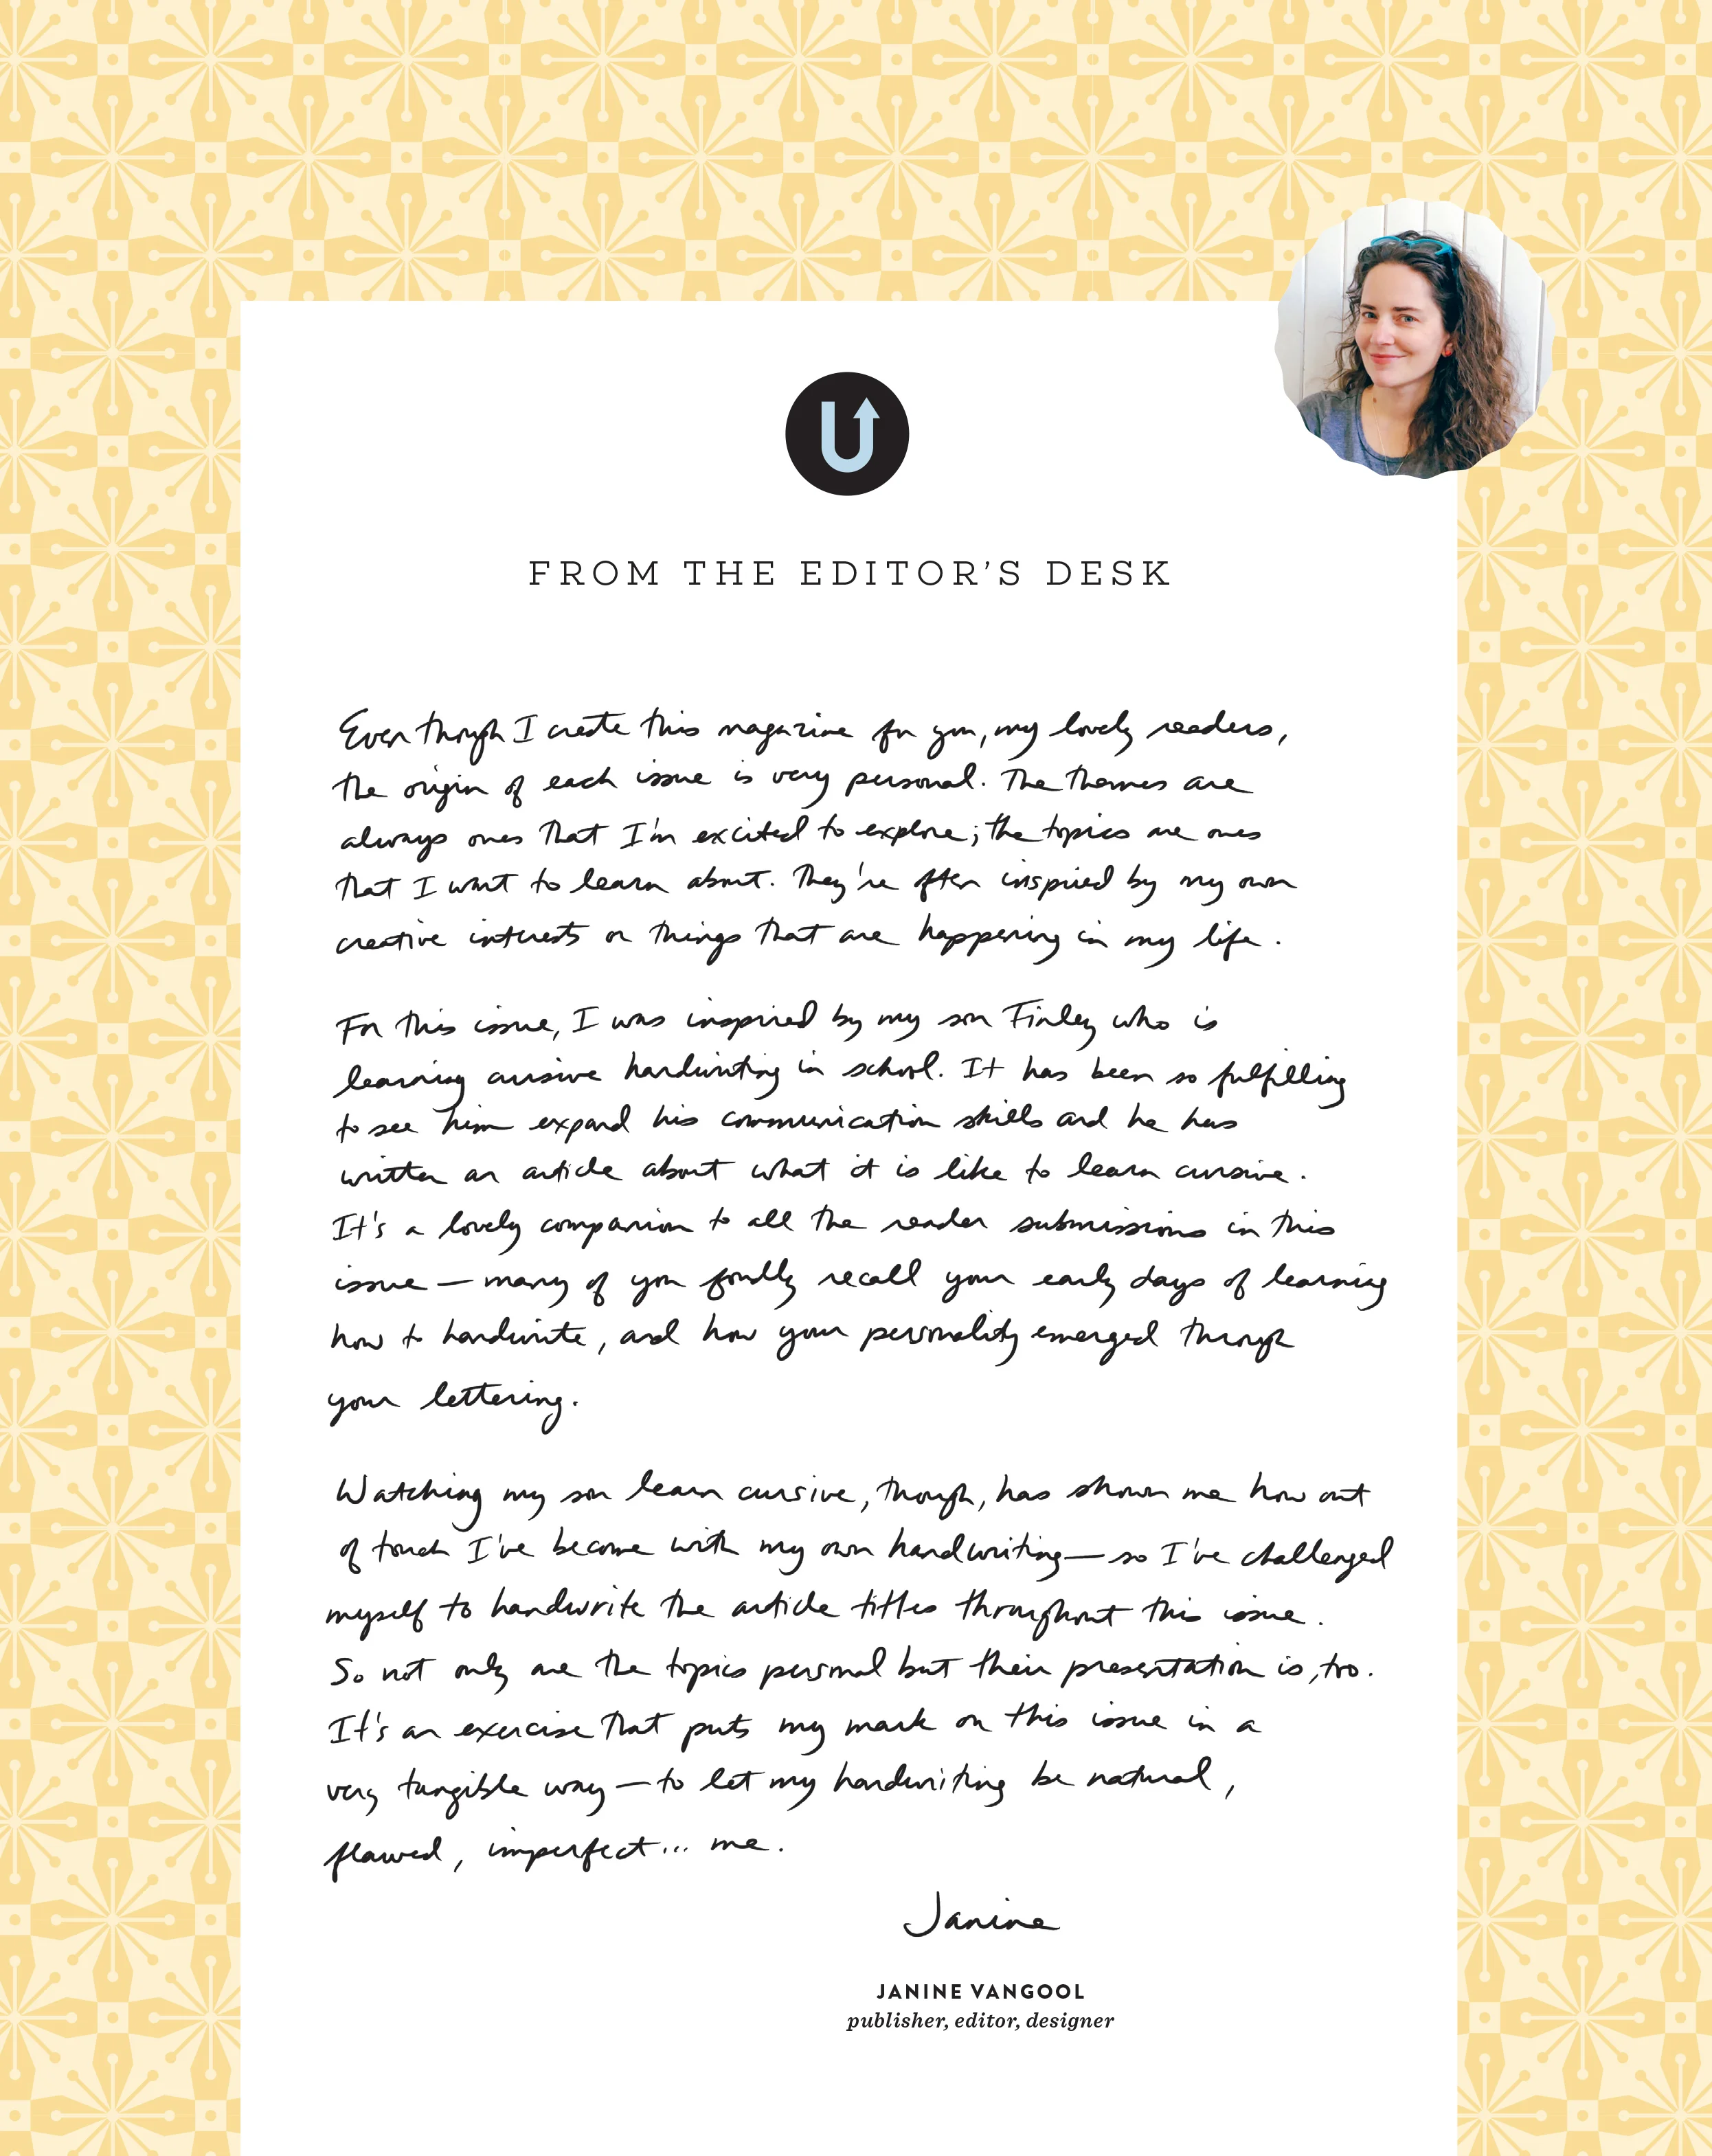 U
FROM THE EDITOR'S DESK
Even though I create this magazine for you, my lovely readers,
the origin of each issue is very personal. The themes are
always ones that I'm excited to explore; the topics are ones
that I want to learn about. They're often inspired by my own
creative interests or things that are happening in my life.
For this issue, I was inspired by my son Finley who is
learning cursive handwriting in school. It has been so fulfilling
to see him expand his communication skills and he has
written an article about what it is like to learn cursive.
It's a lovely companion to all the reader submissions in this
issue — many of you fondly recall your early days of learning
how to handwrite, and how your personality emerged through
your lettering.
Watching my son learn cursive, though, has shown me how out
of touch I've become with my own handwriting — so I've challenged
myself to handwrite the article titles throughout this issue.
So not only are the topics personal but their presentation is, too.
It's an exercise that puts my mark on this issue in a
very tangible way — to let my handwriting be natural,
flawed, imperfect... me.
Janine
JANINE VANGOOL
publisher, editor, designer